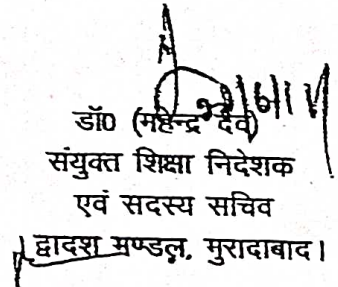 डॉ0 (महेन्द्र देव)
संयुक्त शिक्षा निदेशक
एवं सदस्य सचिव
द्वादश मण्डल, मुरादाबाद।